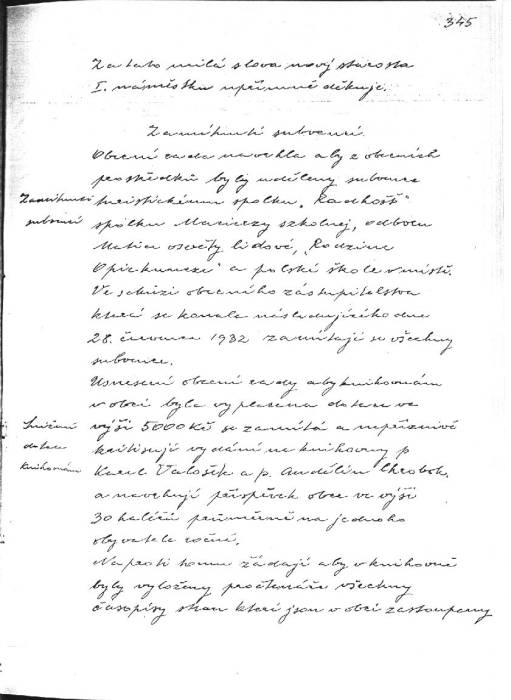 345
Za tato milá slova nový starosta
I. náměstku upřímně děkuje.
Zamítnutí subvencí.
Obecní rada navrhla aby z obecních
prostředků byly uděleny subvence
Zamítnutí
subvencí
turistickému spolku „Radhošť“
spolku Macierzy szkolnej, odboru
Matice osvěty lidové, „Rodzine
Opiekuncze“ a polské škole v místě.
Ve schůzi obecního zastupitelstva
která se konala následujícího dne
28. července 1932 zamítají se všechny
subvence.
Usnesení obecní rady aby knihovnám
v obci byla vyplacena dotace ve
Snížení
dotace
knihovnám
výši 5000 Kč se zamítá a nepříznivě
kritisují vydání na knihovny p.
Karel Valošek a p. Andělín Chrobok.
a navrhují příspěvek obce ve výši
30 haléřů průměrně na jednoho
obyvatele ročně.
Naproti tomu žádají aby v knihovně
byly vyloženy pro čtenáře všechny
časopisy stran které jsou v obci zastoupeny